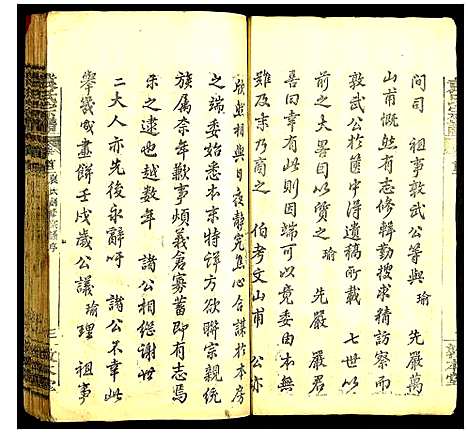 問司 祖事敦武公等與瑜 先嚴萬
山甫慨然有志修輯勤搜求精訪察而
敦武公於篋中得遺稿所載 七世以
前之大畧因以質之瑜 先嚴 嚴君
喜曰幸有此則因端可以竟委由本無
難及末乃商之 伯考文山甫 公亦
欣然相與日夜靜完焦心合謀於本房
之端委始悉本末特詳方欲聯宗親統
族属奈年歉事煩義倉寡蓄即有志焉
未之逮也越数年 諸公相继谢世
二大人亦先後永辭吁 諸公不幸此
舉幾成畫餅壬戌歲公議瑜理 祖事
首
三
敦本堂